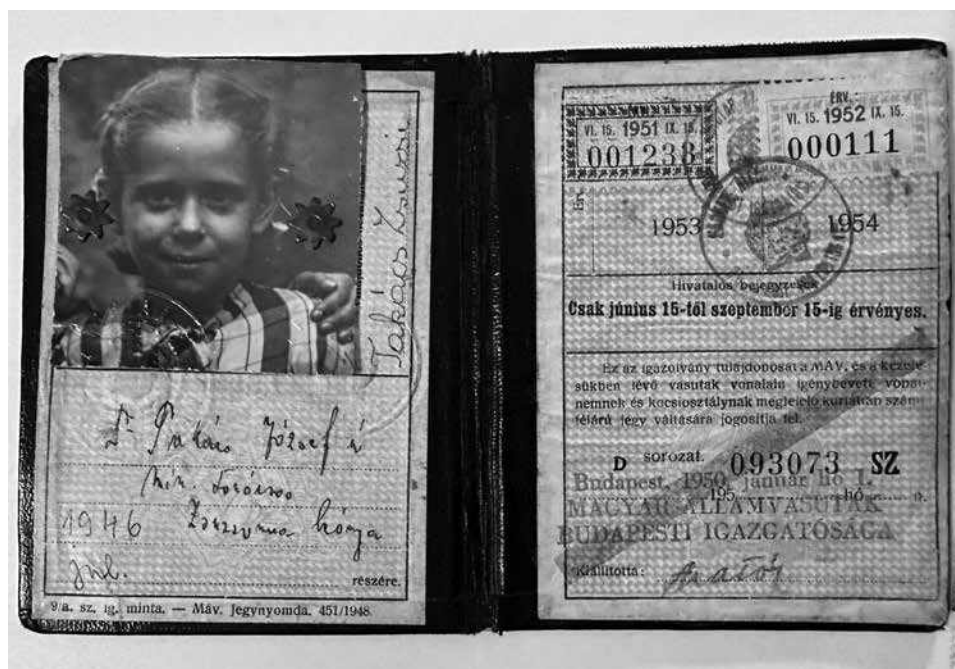 Takács Zsuzsi
Dr Takács József
1946 Zsuzsanna
részére.
9/a. sz. ig. minta. — Máv. Jegynyomda. 451/1948.
VI. 15. 1951 IX. 15.
001238
ÉRV.:
VI. 15. 1952 IX. 15.
000111
Érv
1953
1954
Hivatalos bejegyzések
Csak június 15-től szeptember 15-ig érvényes.
Ez az igazolvány tulajdonosát a MÁV. és a kezelé-
sükben lévő vasutak vonalain igénybevett vonat-
nemnek és kocsiosztálynak megfelelő korlátlan számú
félárú jegy váltására jogosítja fel.
D sorozat. 093073 SZ
Budapest, 1950. január hó 1.
195 hó n.
MAGYAR ÁLLAMVASUTAK
BUDAPESTI IGAZGATÓSÁGA
Kiállította: